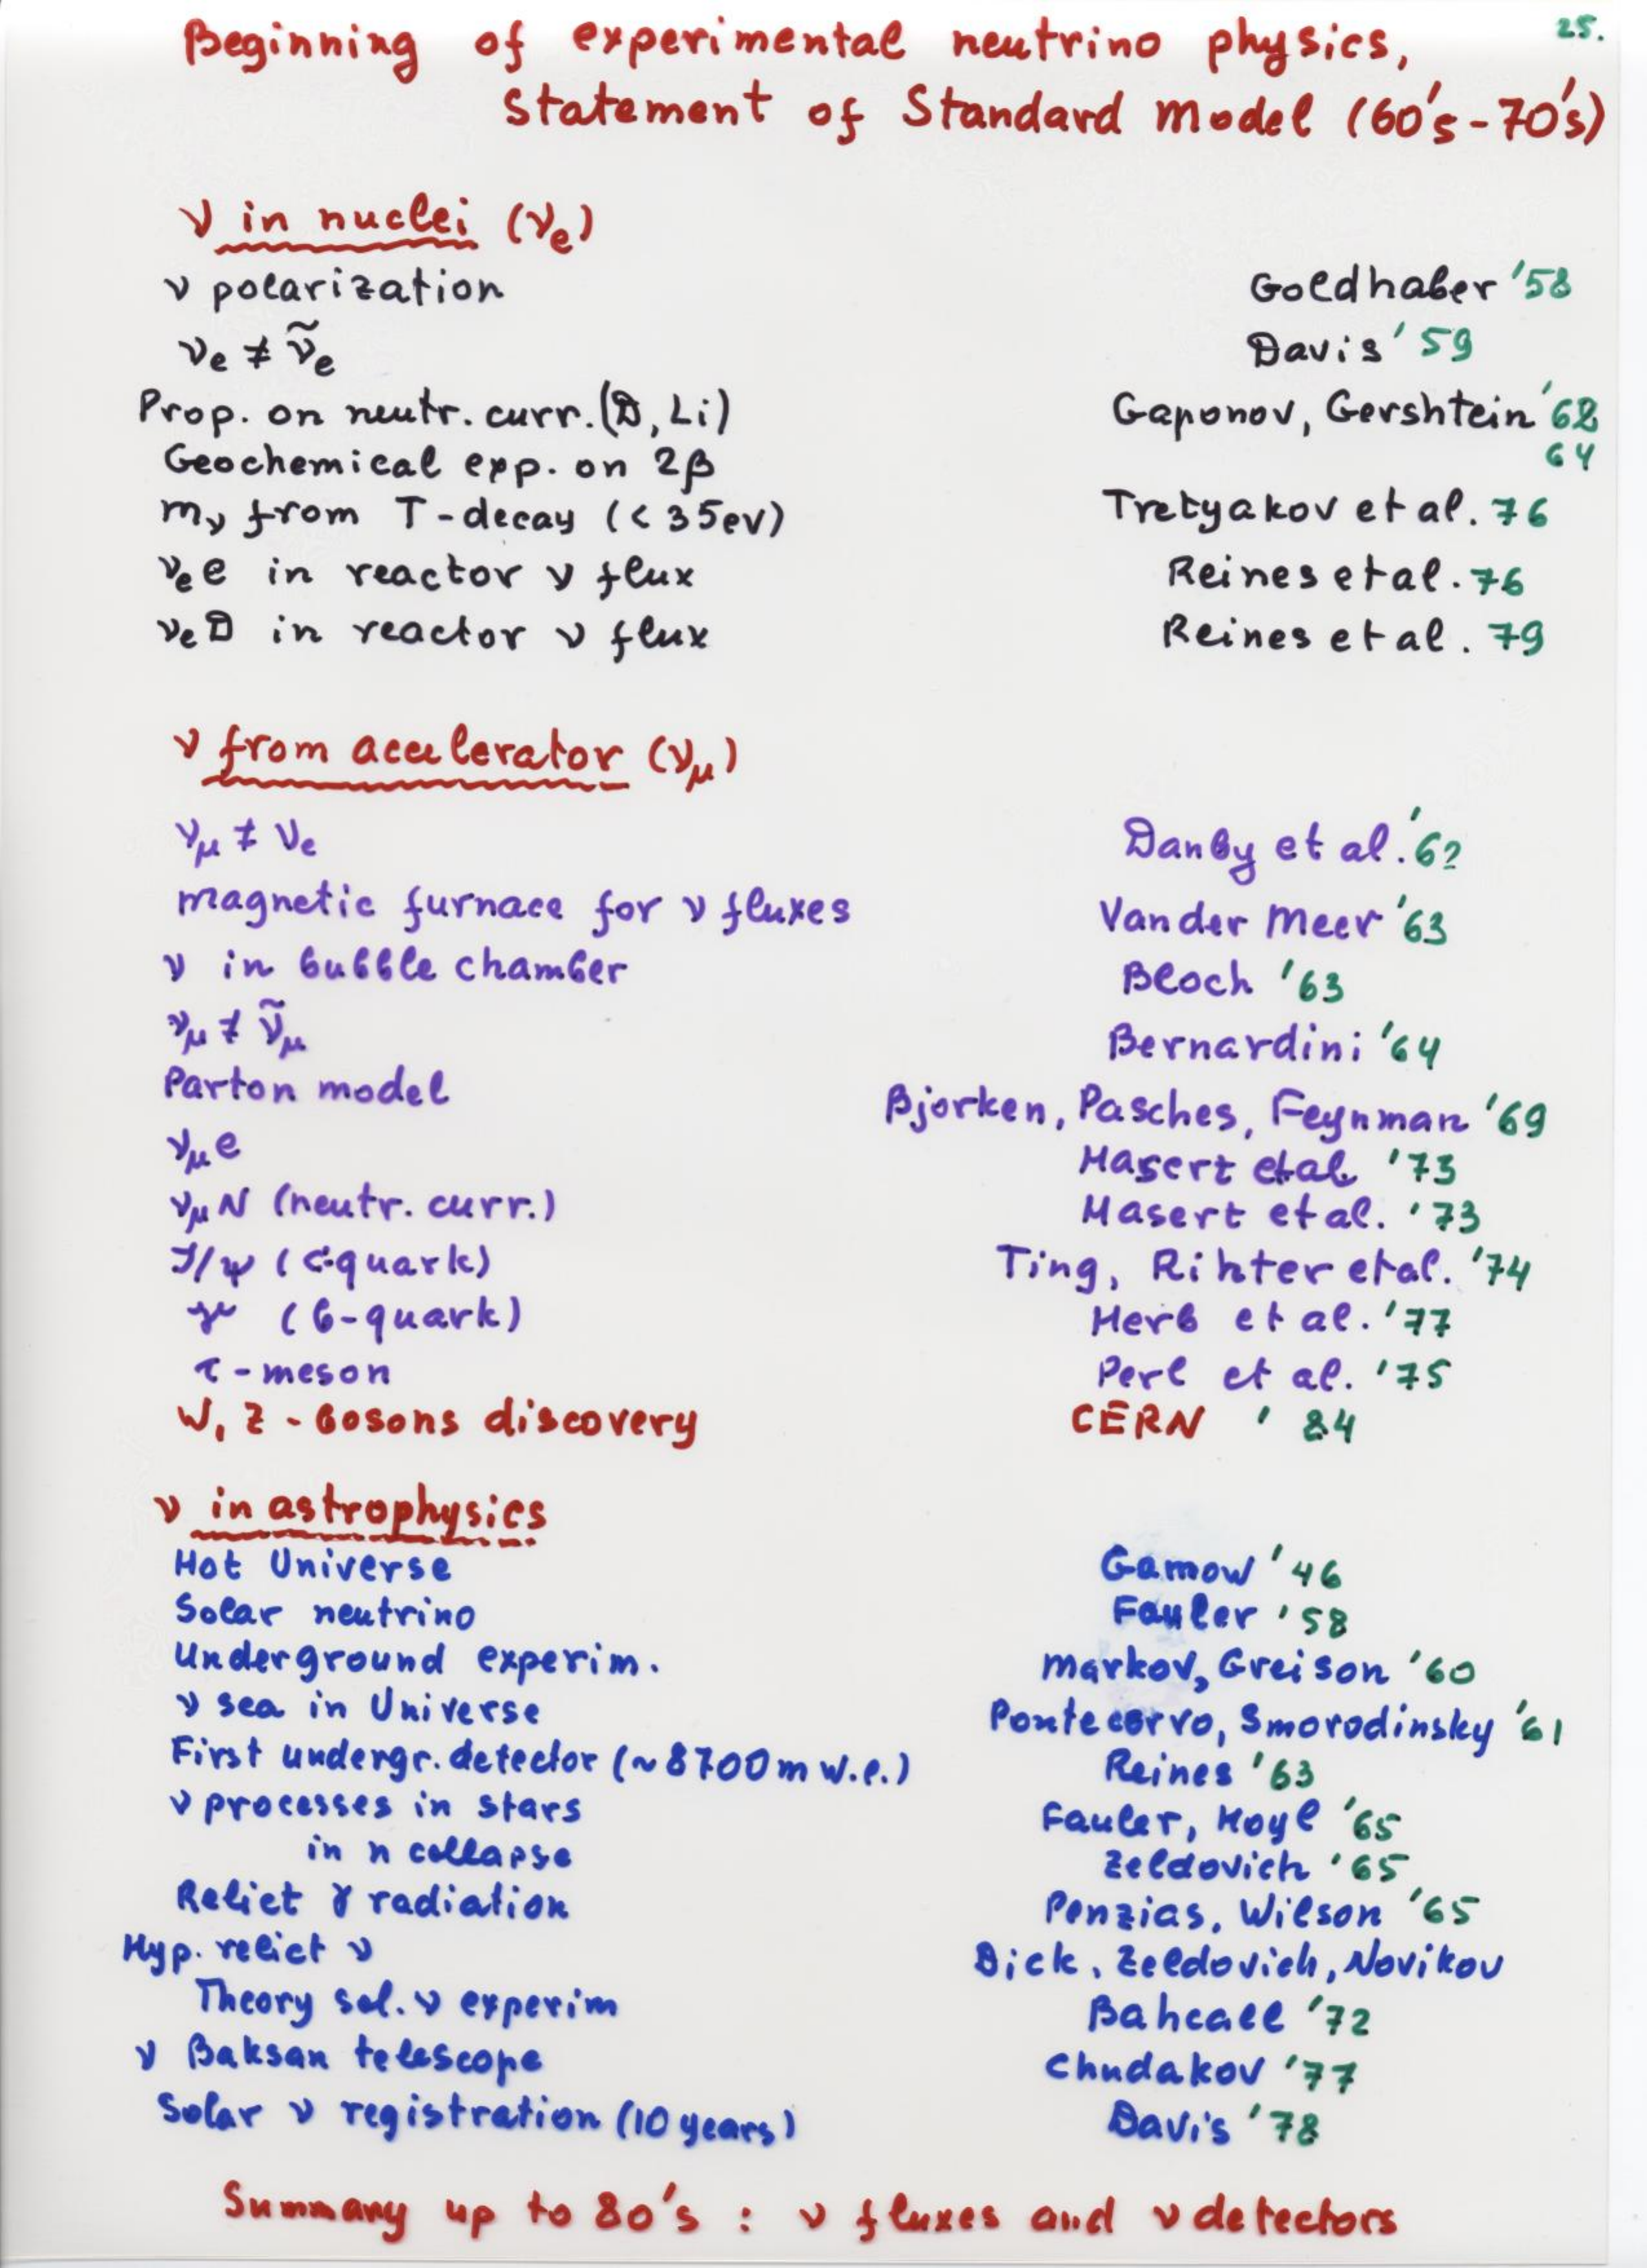 25.
Beginning of experimental neutrino physics,
Statement of Standard Model (60's-70's)
ν in nuclei (νe)
ν polarization Goldhaber '58
νe ≠ ν̃e Davis '59
Prop. on neutr. curr. (D, Li) Gaponov, Gershtein '68
Geochemical exp. on 2β 64
mν from T-decay (<35ev) Tretyakov et al. 76
νe e in reactor ν flux Reines et al. 76
νe D in reactor ν flux Reines et al. 79
ν from accelerator (νμ)
νμ ≠ νe Danby et al. '62
magnetic furnace for ν fluxes Van der Meer '63
ν in bubble chamber Bloch '63
νμ ≠ ν̃μ Bernardini '64
Parton model Bjorken, Pasches, Feynman '69
νμ e Hasert et al. '73
νμ N (neutr. curr.) Hasert et al. '73
J/ψ (c-quark) Ting, Rihter et al. '74
(b-quark) Herb et al. '77
τ-meson Perl et al. '75
W, Z - bosons discovery CERN '84
ν in astrophysics
Hot Universe Gamow '46
Solar neutrino Fauler '58
Underground experim. Markov, Greison '60
ν sea in Universe Pontecorvo, Smorodinsky '61
First undergr. detector (~8700 m w.e.) Reines '63
ν processes in stars Fauler, Hoyl '65
in n collapse Zeldovich '65
Relict γ radiation Penzias, Wilson '65
Hyp. relict ν Dick, Zeldovich, Novikov
Theory sol. ν experim Bahcall '72
ν Baksan telescope Chudakov '77
Solar ν registration (10 years) Davis '78
Summany up to 80's : ν fluxes and ν detectors